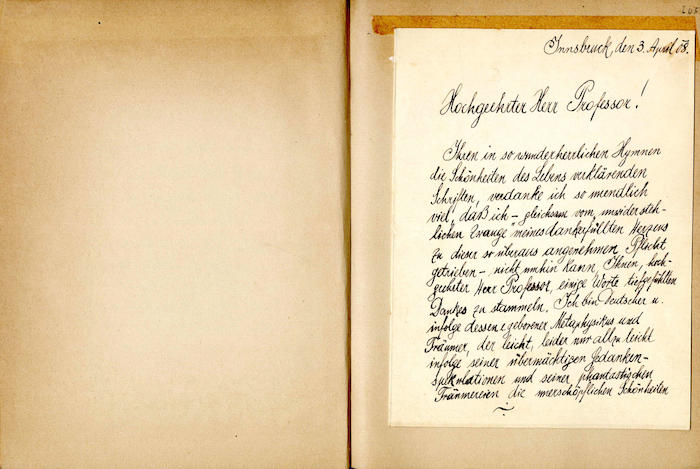 Innsbruck, den 3. April 08.
Hochgeehrter Herr Professor!
Ihren in so wunderherrlichen Hymnen
die Schönheiten des Lebens verklärenden
Schriften, verdanke ich so unendlich
viel, daß ich – gleichsam vom „unwidersteh-
lichen Zwange" meines dankerfüllten Herzens
zu dieser so überaus angenehmen Pflicht
getrieben – nicht umhin kann, Ihnen, hoch-
geehrter Herr Professor, einige Worte tiefgefühlten
Dankes zu stammeln. Ich bin Deutscher u.
infolge dessen geborener Metaphysikus und
Träumer, der leicht, leider nur allzu leicht
infolge seiner übermächtigen Gedanken-
spekulationen und seiner phantastischen
Träumereien die unerschöpflichen Schönheiten